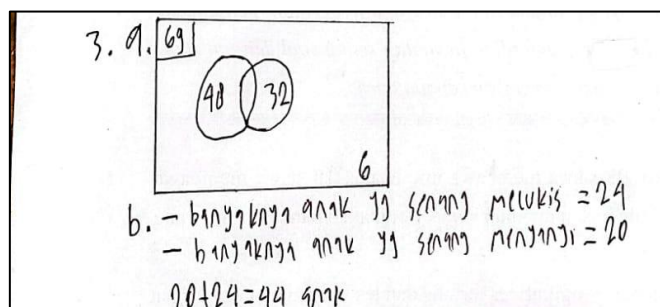 3. a. 69
48 32
6
b. - banyaknya anak yg senang melukis = 24
- banyaknya anak yg senang menyanyi = 20
20+24=44 anak